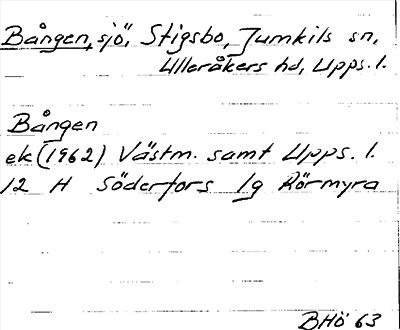 Bången, sjö, Stigsbo, Jumkils sn,
Ulleråkers hd, Upps. l.
Bången
ek (1962) Västm. samt Upps. l.
12 H Söderfors Ig Rörmyra
BHÖ 63